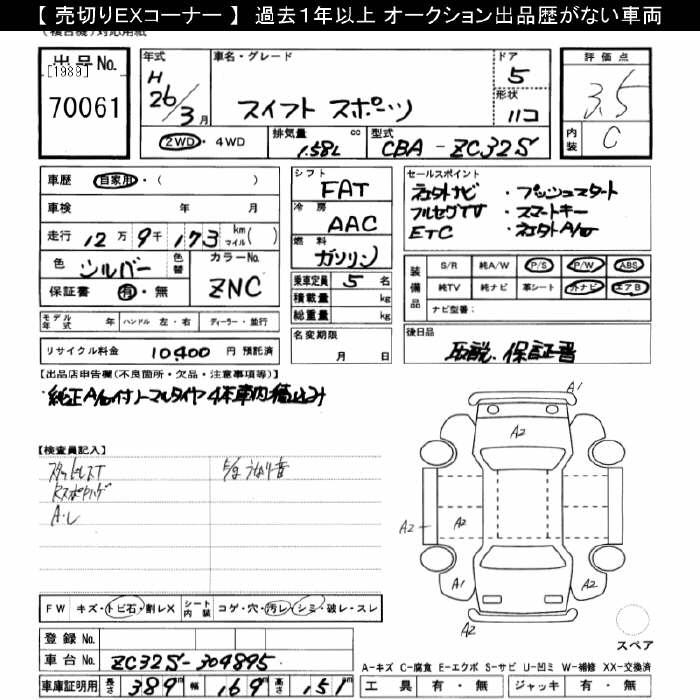 【 売切りEXコーナー 】 過去1年以上 オークション出品歴がない車両
出品No.
[1989]
70061
年式
H
26/3月
車名・グレード
スイフト スポーツ
ドア
5
形状
ハコ
評価点
3.5
内装
C
2WD・4WD
排気量 1.58L cc
型式
CBA - ZC32S
車歴 自家用・( )
車検 年 月
走行 12万9千173 km マイル( )
色 シルバー
色替
カラーNo.
ZNC
保証書 有・無
モデル年式 年 ハンドル 左・右 ディーラー・並行
リサイクル料金 10400 円 預託済
シフト
FAT
冷房
AAC
燃料
ガソリン
乗車定員 5 名
積載量 kg
総重量 kg
名変期限
月 日
セールスポイント
社外ナビ ・プッシュスタート
フルセグTV ・スマートキー
ETC ・社外A/W
装備品
S/R 純A/W P/S P/W ABS
純TV 純ナビ 革シート 外ナビ エアB
ナビ型番:
後日品
取説、保証書
【出品店申告欄(不良箇所・欠品・注意事項等)】
・純正A/W付ノーマルタイヤ4本車内積込み
【検査員記入】
スタッドレスT
Rスポイラー
A・L
うなり音
A1
A2
A2
A2
A1
A2
A2
スペア
FW キズ・トビ石・割レX シート内装 コゲ・穴・汚レ・シミ・破レ・スレ
登録No.
車台No. ZC32S-304895
車庫証明用 長さ 389 幅 169 高さ 151 cm
A-キズ C-腐食 E-エクボ S-サビ U-凹ミ W-補修 XX-交換済
工具 有・無 ジャッキ 有・無